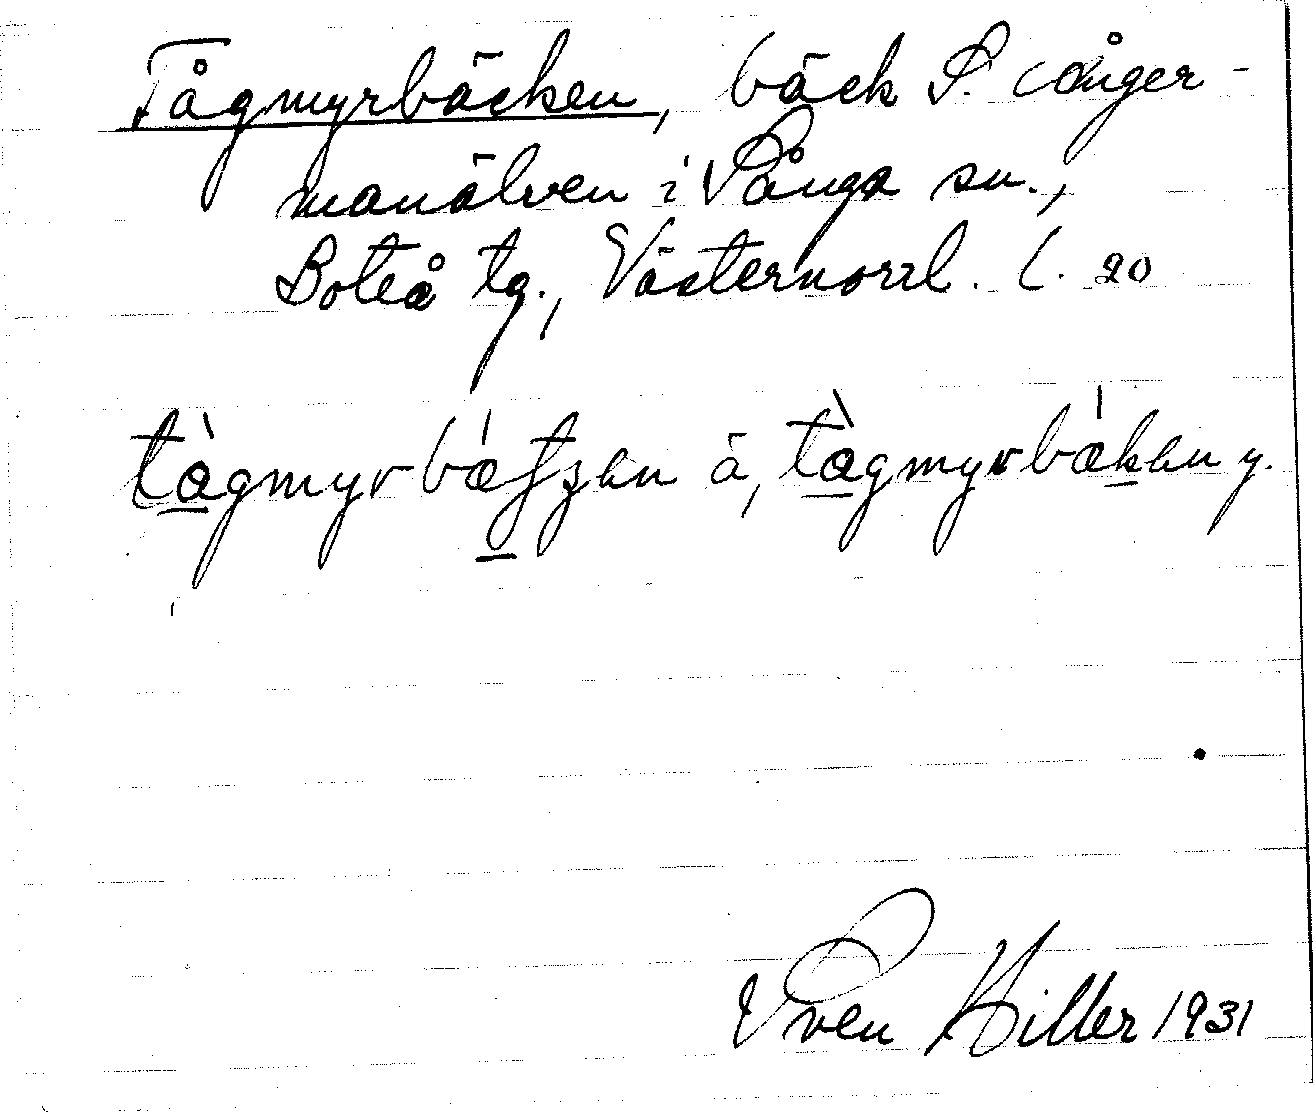 Tågmyrbäcken, bäck S. Ånger-
manälven i Sånga sn.,
Boteå tg., Västernorrl. l. 20
tàgmyrbǽtʃen ä, tàgmyrbǽken y.
Sven Hiller 1931